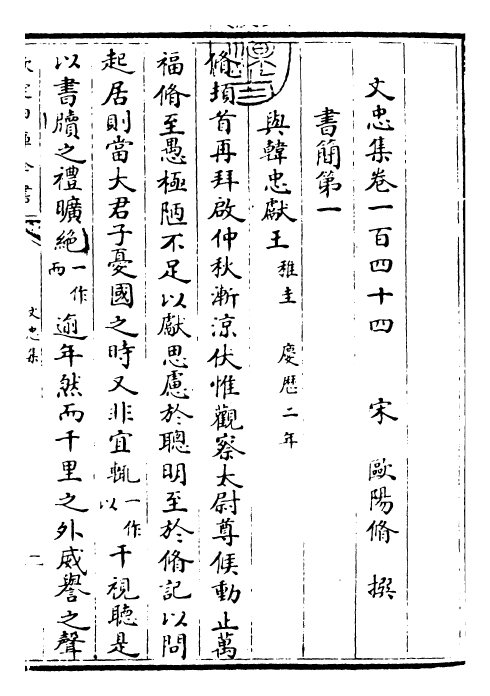 文忠集卷一百四十四　宋　歐陽脩　撰
書簡第一
與韓忠獻王 稚圭　慶歷二年
脩頓首再拜啟仲秋漸涼伏惟觀察太尉尊候動止萬
福脩至愚極陋不足以獻思慮於聰明至於脩記以問
起居則當大君子憂國之時又非宜輒一作以干視聽是
以書牘之禮曠絶一作而逾年然而千里之外威譽之聲
欽定四庫全書
文忠集
一